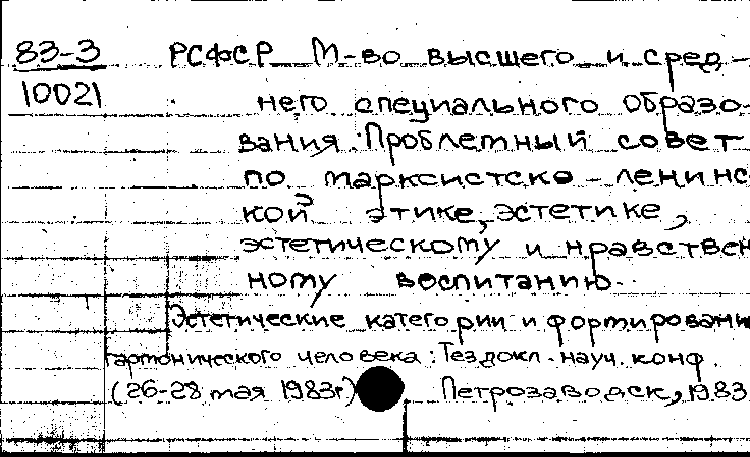 83-3 РСФСР М-во высшего и сред-
10021 него специального образо-
вания. Проблемный совет
по марксистско-ленинс
кой этике, эстетике,
эстетическому и нравствен
ному воспитанию.
Эстетические категории и формировани
гармонического человека: Тез докл. науч. конф.
(26-28 мая 1983г.) Петрозаводск, 1983